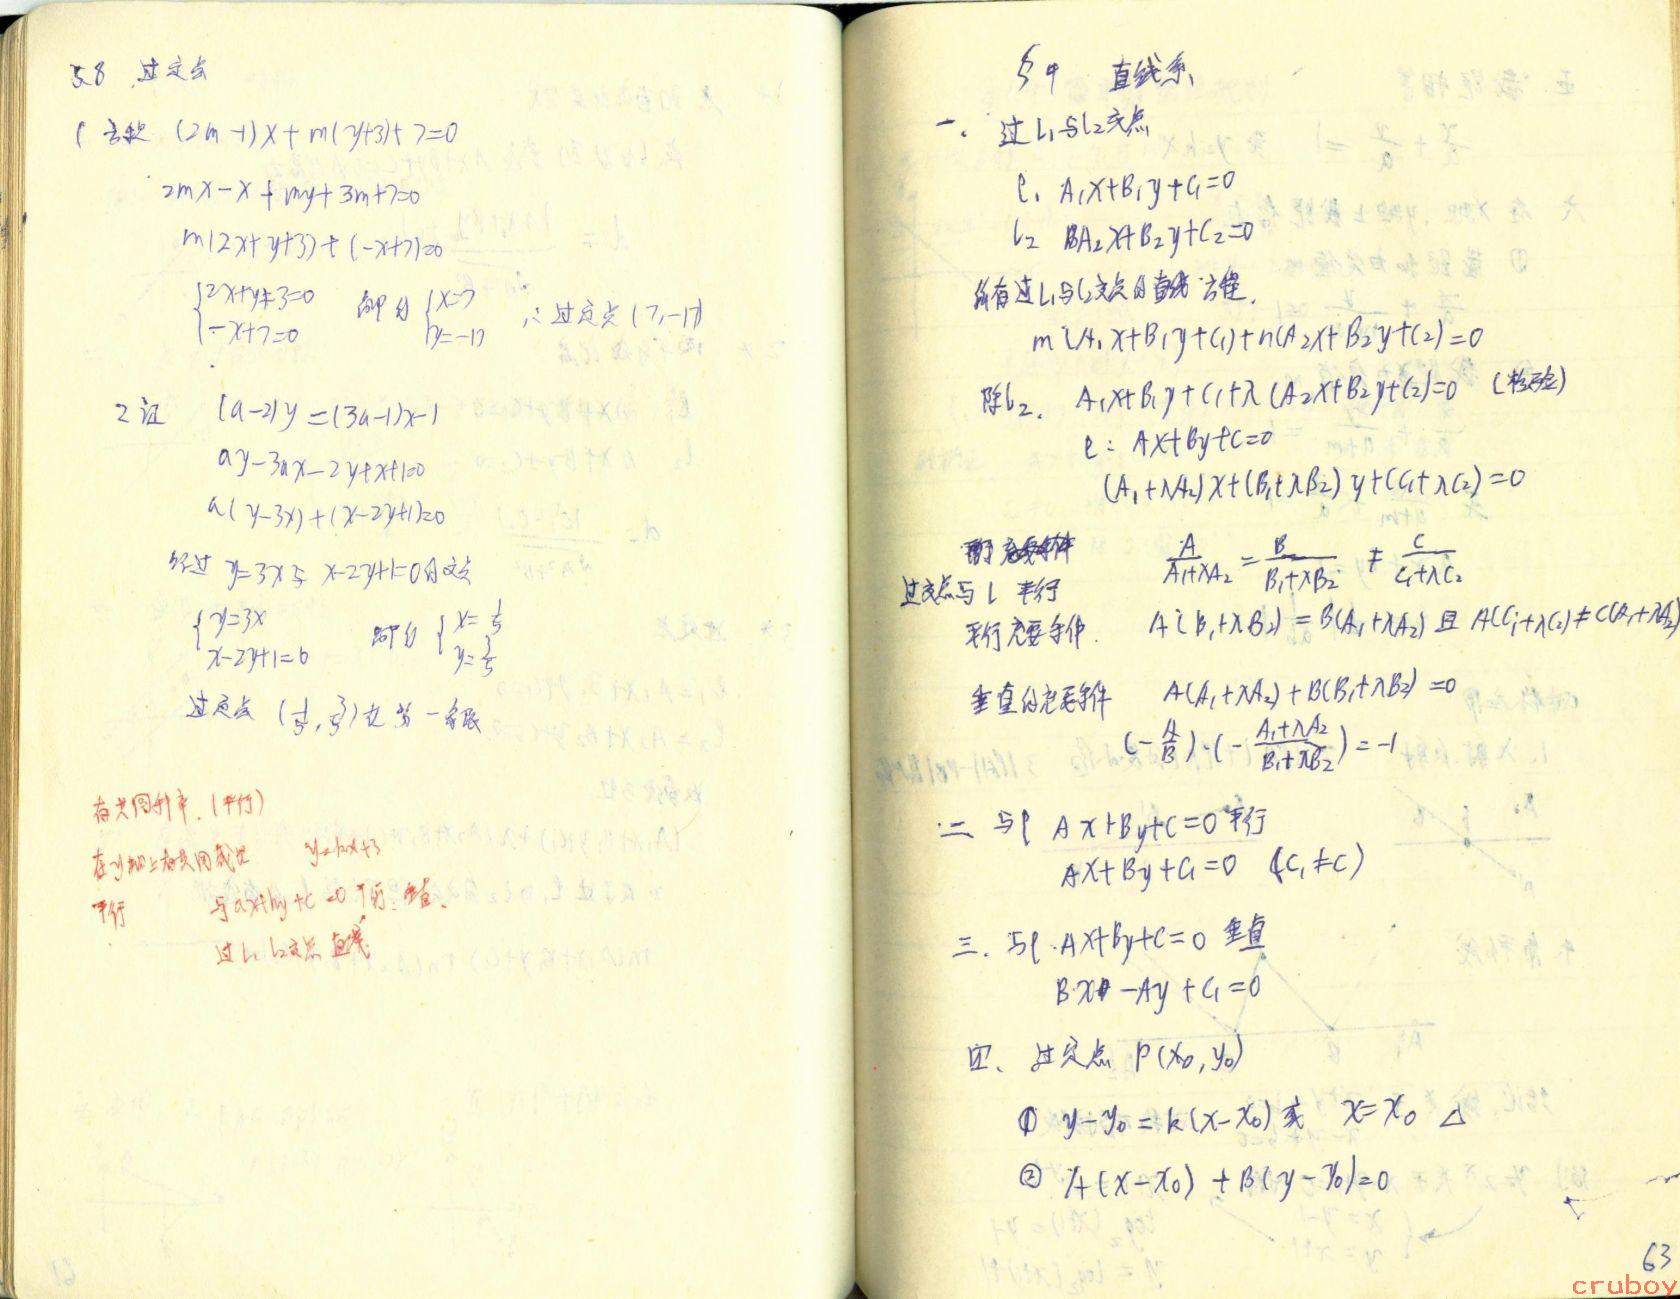 §8 过定点
1 方程 (2m-1)x+m(y+3)+7=0
2mx-x+my+3m+7=0
m(2x+y+3)+(-x+7)=0
{2x+y+3=0 {x=7 ∴过定点(7,-17)
-x+7=0 y=-17
2 证 (a-2)y=(3a-1)x-1
ay-3ax-2y+x+1=0
a(y-3x)+(x-2y+1)=0
经过y=3x与x-2y+1=0的交点
{y=3x {x=1/5
x-2y+1=0 y=3/5
过定点(1/5,3/5)在第一象限
有共同斜率.(平行)
在y轴上有共同截距 y=kx+3
平行 与ax+by+c=0平行.垂直.
过L₁ L₂交点直线
§9 直线系
一、过L₁与L₂交点
l₁ A₁x+B₁y+C₁=0
l₂ A₂x+B₂y+C₂=0
所有过L₁与L₂交点的直线方程.
m(A₁x+B₁y+C₁)+n(A₂x+B₂y+C₂)=0
除l₂. A₁x+B₁y+C₁+λ(A₂x+B₂y+C₂)=0 (检验)
l: Ax+By+C=0
(A₁+λA₂)x+(B₁+λB₂)y+(C₁+λC₂)=0
A/(A₁+λA₂)=B/(B₁+λB₂)≠C/(C₁+λC₂)
过交点与L平行
平行充要条件. A(B₁+λB₂)=B(A₁+λA₂)且A(C₁+λC₂)≠C(A₁+λA₂)
垂直的充要条件 A(A₁+λA₂)+B(B₁+λB₂)=0
(-A/B)·(-(A₁+λA₂)/(B₁+λB₂))=-1
二 与l Ax+By+C=0平行
Ax+By+C₁=0 (C₁≠C)
三、与l Ax+By+C=0 垂直
Bx-Ay+C₁=0
四、过定点P(x₀,y₀)
① y-y₀=k(x-x₀)或 x=x₀ △
② A(x-x₀)+B(y-y₀)=0
63
cruboy